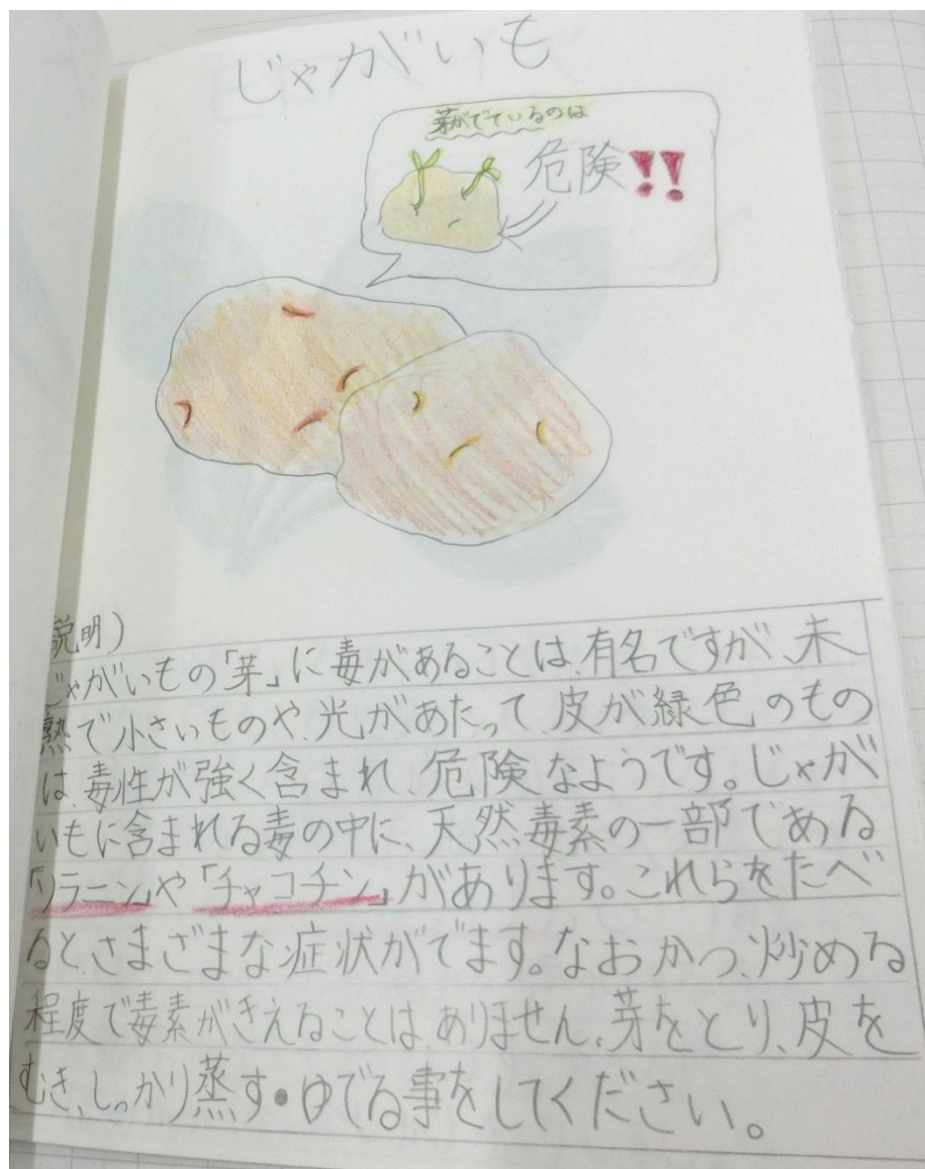 じゃがいも
芽がでているのは
危険!!
説明)
じゃがいもの「芽」に毒があることは、有名ですが、未
熟で小さいものや、光があたって、皮が緑色のもの
は、毒性が強く含まれ、危険なようです。じゃが
いもに含まれる毒の中に、天然毒素の一部である
「ソラニン」や「チャコチン」があります。これらをたべ
ると、さまざまな症状がでます。なおかつ、炒める
程度で毒素がきえることは、ありません。芽をとり、皮を
むき、しっかり蒸す・ゆでる事をしてください。